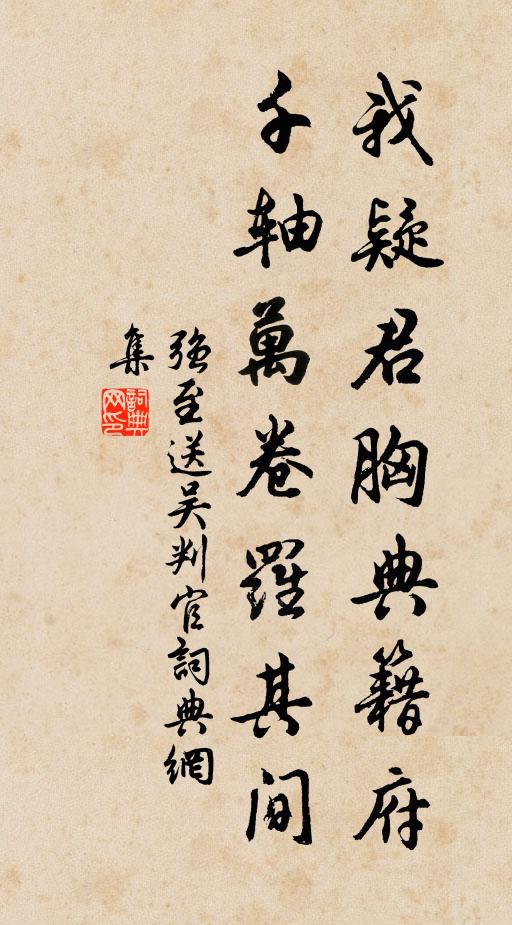 我疑君胸典籍府
千軸萬卷羅其間
强至送吴判官詞典網
集
詞典网印